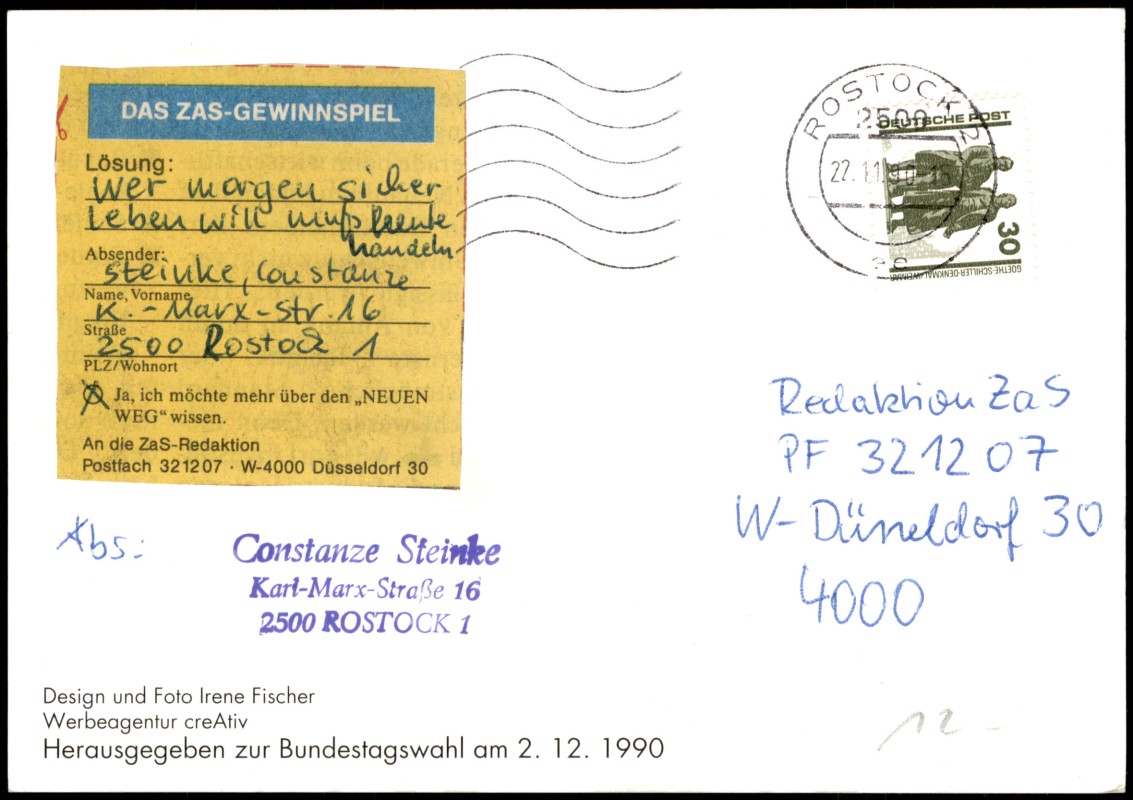 DAS ZAS-GEWINNSPIEL
Lösung:
Wer morgen sicher
Leben will muß heute
handeln
Absender:
Steinke, Constanze
Name, Vorname
K.-Marx-Str. 16
Straße
2500 Rostock 1
PLZ/Wohnort
Ja, ich möchte mehr über den „NEUEN
WEG“ wissen.
An die ZaS-Redaktion
Postfach 321207 · W-4000 Düsseldorf 30
ROSTOCK 2
2500
22.11.90-16
ae
DEUTSCHE POST
30
GOETHE-SCHILLER-DENKMAL
Redaktion ZaS
PF 321207
W-Düsseldorf 30
4000
Abs:
Constanze Steinke
Karl-Marx-Straße 16
2500 ROSTOCK 1
Design und Foto Irene Fischer
Werbeagentur creAtiv
Herausgegeben zur Bundestagswahl am 2. 12. 1990
12-